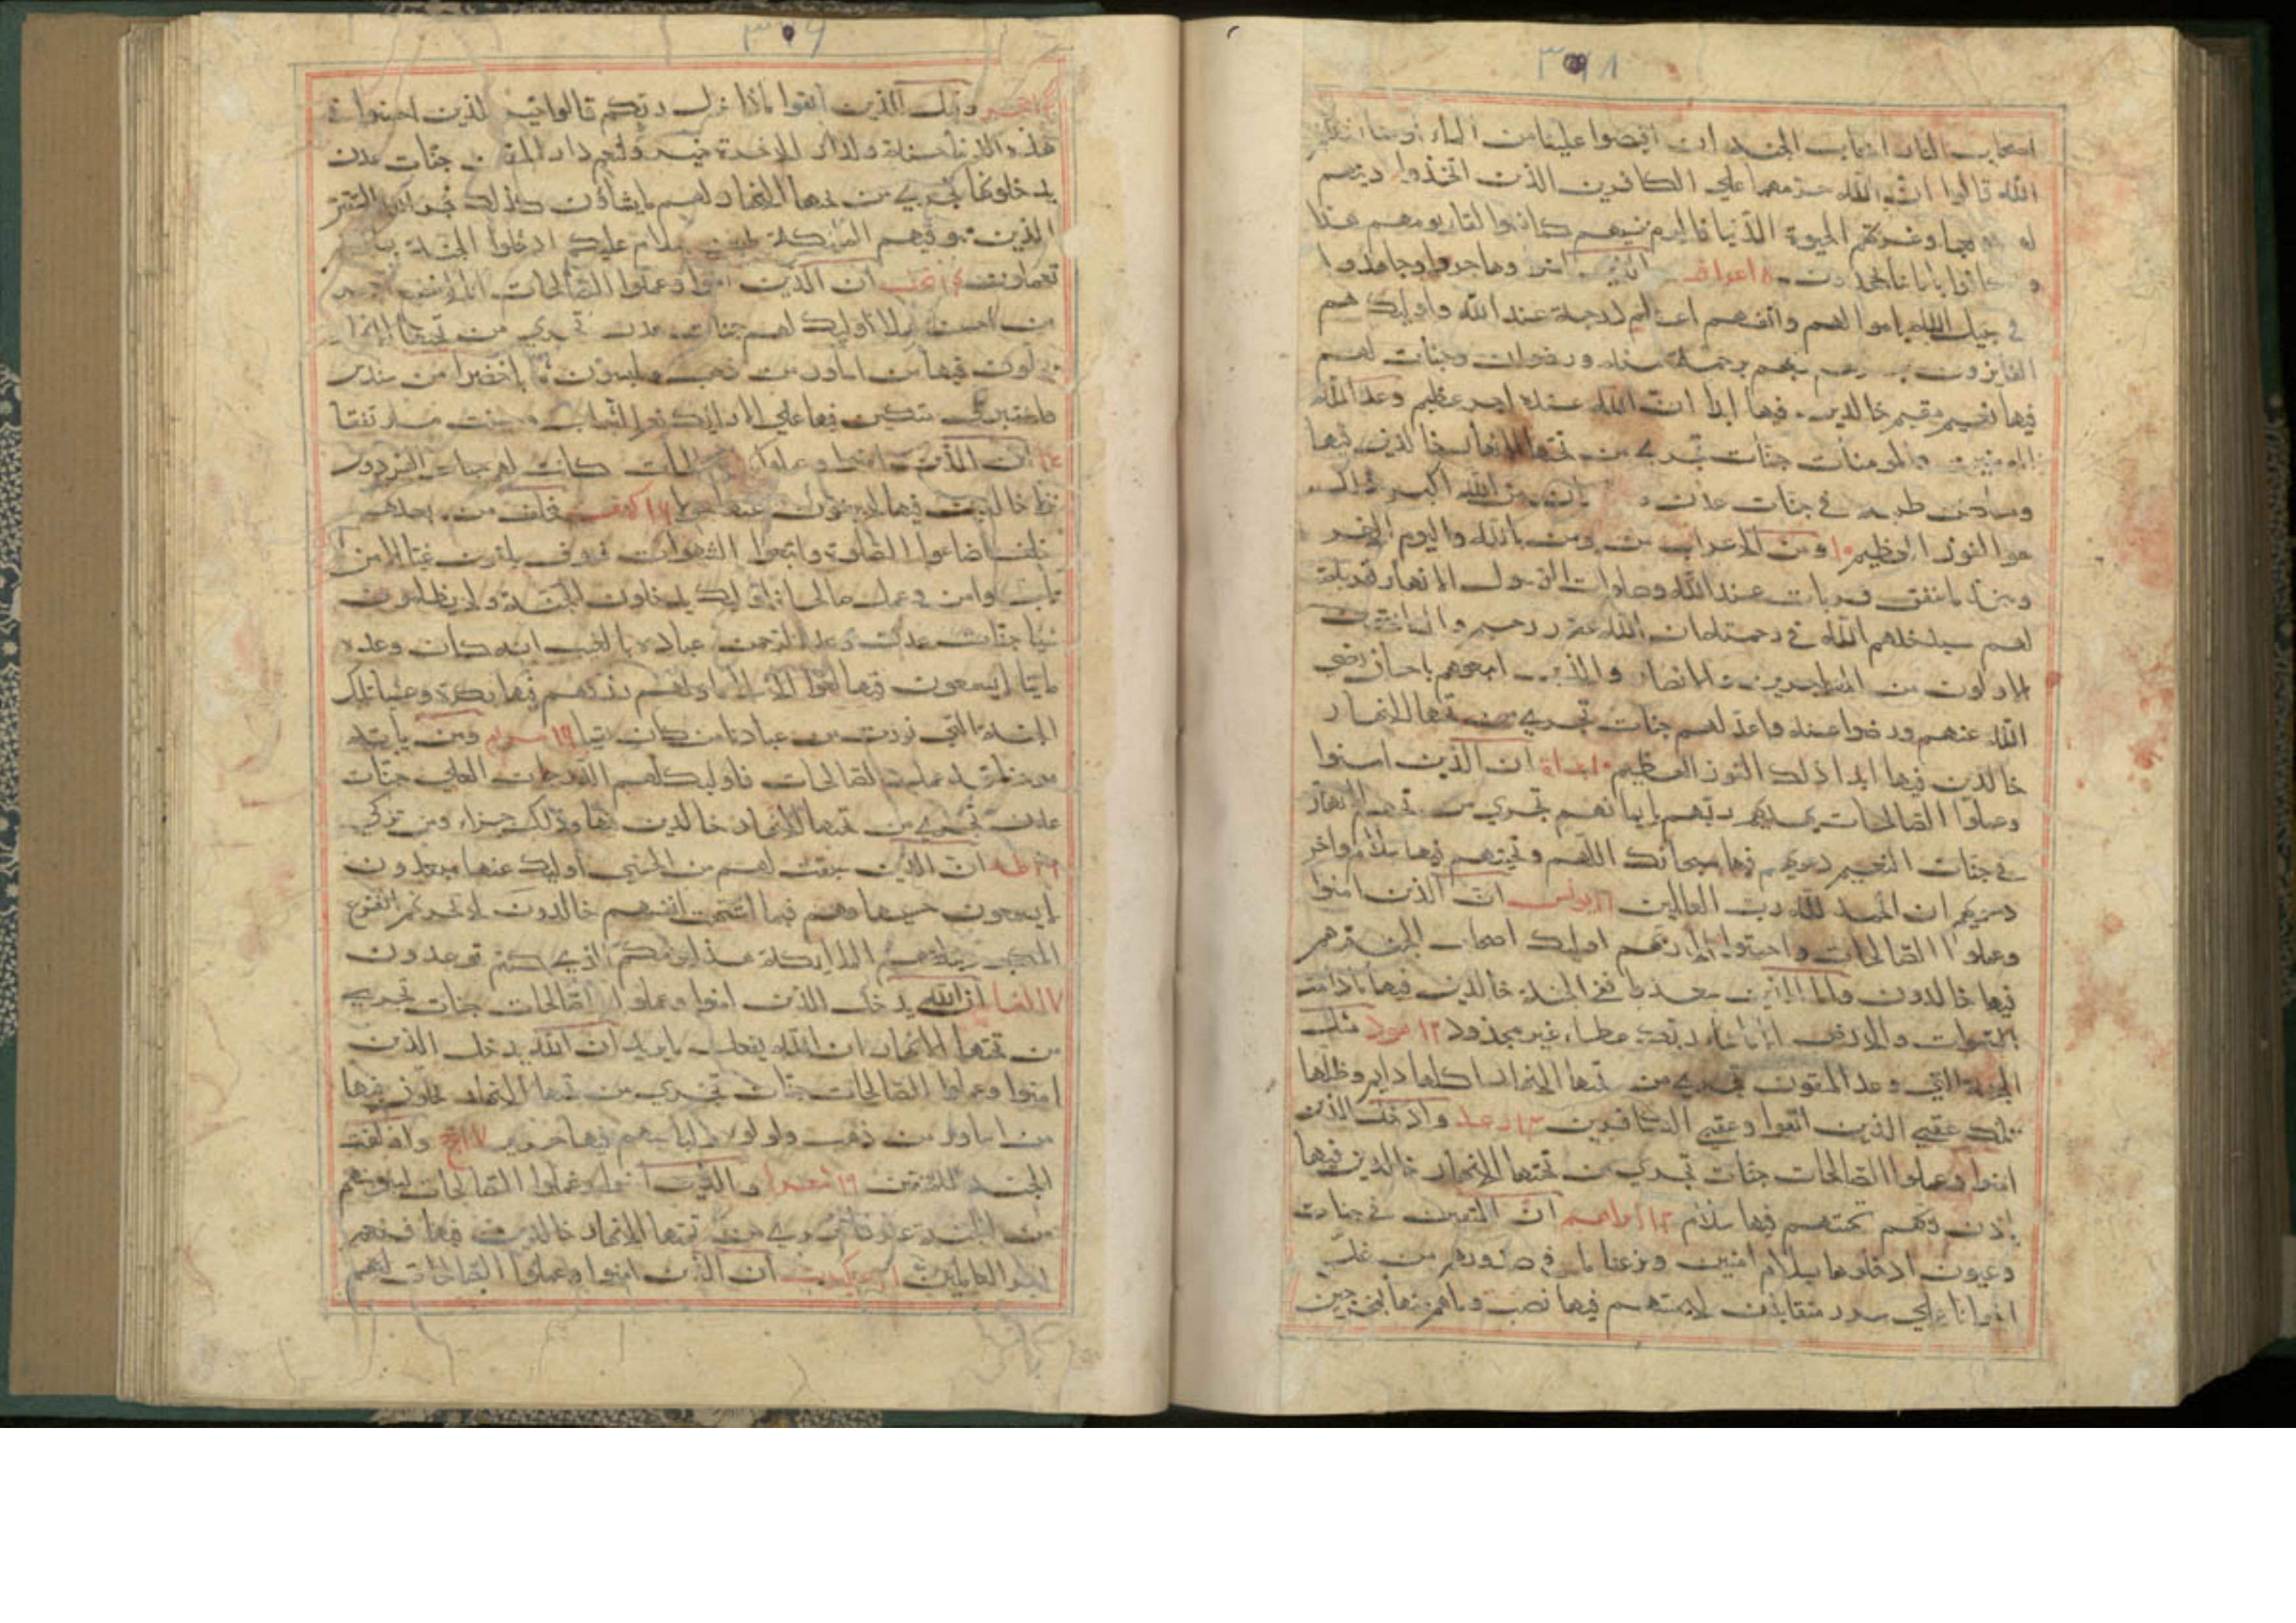 ٣٦٨
اصحاب النار اصحاب الجنه ان افيضوا علينا من الماء او مما رزقكم
الله قالوا ان الله حرمهما علي الكافرين الذين اتخذوا دينهم
وغرتهم الحيوة الدنيا فاليوم ننسيهم كما نسوا لقاء يومهم هذا
و كانوا باياتنا يجحدون ٨ اعراف الذين امنوا وهاجروا وجاهدوا
في سبيل الله باموالهم وانفسهم اعظم درجة عند الله واوليك هم
الفايزون ربهم برحمة منه ورضوان وجنات لهم
فيها نعيم مقيم خالدين فيها ابدا ان الله عنده اجر عظيم وعد الله
المومنين والمومنات جنات تجري من تحتها الانهار خالدين فيها
ومساكن طيبه في جنات عدن من الله اكبر ذلك
هو الفوز العظيم ومن الاعراب من يومن بالله واليوم الاخر
ويتخذ ما ينفق قربات عند الله وصلوات الرسول الا انها قربة
لهم سيدخلهم الله في رحمته ان الله غفور رحيم والسابقون
الاولون من المهاجرين والانصار والذين اتبعوهم باحسان رضي
الله عنهم ورضوا عنه واعد لهم جنات تجري من تحتها الانهار
خالدين فيها ابدا ذلك الفوز العظيم ان الذين امنوا
وعملوا الصالحات يهديهم ربهم بايمانهم تجري من تحتهم الانهار
في جنات النعيم دعويهم فيها سبحانك اللهم وتحيتهم فيها سلام واخر
دعويهم ان الحمد لله رب العالمين ١١ يونس ان الذين امنوا
وعملوا الصالحات واخبتوا الي ربهم اوليك اصحاب الجنة هم
فيها خالدون واما الذين سعدوا ففي الجنة خالدين فيها مادامت
السموات والارض الا ماشاء ربك عطاء غير مجذوذ ١٢ هود مثل
الجنة التي وعد المتقون تجري من تحتها الانهار اكلها دايم وظلها
تلك عقبي الذين اتقوا وعقبي الكافرين ١٣ رعد وادخل الذين
امنوا وعملوا الصالحات جنات تجري من تحتها الانهار خالدين فيها
باذن ربهم تحيتهم فيها سلام ابراهيم ان المتقين في جنات
وعيون ادخلوها بسلام امنين ونزعنا ما في صدورهم من غل
اخوانا علي سرر متقابلين لايمسهم فيها نصب وماهم منها بمخرجين
٣٦٩
وقيل الذين اتقوا ماذا انزل ربكم قالوا خير للذين احسنوا في
هذه الدنيا حسنة ولدار الاخرة خير ولنعم دار المتقين جنات عدن
يدخلونها تجري من تحتها الانهار لهم مايشاؤن كذلك يجزي الله المتقين
الذين تتوفيهم الملئكة طيبين سلام عليكم ادخلوا الجنة بما
تعملون نحل ان الذين امنوا وعملوا الصالحات انا لانضيع اجر
من احسن عملا اوليك لهم جنات عدن تجري من تحتها الانهار
يحلون فيها من اساور من ذهب ويلبسون ثيابا خضرا من سندس
واستبرق متكئين فيها علي الارائك نعم الثواب وحسنت مرتفقا
ان الذين امنوا وعملوا الصالحات كانت لهم جنات الفردوس
نزلا خالدين فيها لايبغون عنها حولا ١٦ كهف فخلف من بعدهم
خلف اضاعوا الصلوة واتبعوا الشهوات فسوف يلقون غيا الا من
تاب وامن وعمل صالحا فاوليك يدخلون الجنة ولا يظلمون
شيا جنات عدن التي وعد الرحمن عباده بالغيب انه كان وعده
ماتيا لايسمعون فيها لغوا الا سلاما ولهم رزقهم فيها بكرة وعشيا تلك
الجنة التي نورث من عبادنا من كان تقيا ١٦ مريم ومن ياته
مومنا قد عمل الصالحات فاوليك لهم الدرجات العلي جنات
عدن تجري من تحتها الانهار خالدين فيها وذلك جزاء من تزكي
طه ان الذين سبقت لهم من الحسني اوليك عنها مبعدون
لايسمعون حسيسها وهم فيما اشتهت انفسهم خالدون لايحزنهم الفزع
الاكبر وتتلقيهم الملايكة هذا يومكم الذي كنتم توعدون
١٧ انبيا ان الله يدخل الذين امنوا وعملوا الصالحات جنات تجري
من تحتها الانهار ان الله يفعل مايريد ان الله يدخل الذين
امنوا وعملوا الصالحات جنات تجري من تحتها الانهار يحلون فيها
من اساور من ذهب ولولوا ولباسهم فيها حرير ١٧ الحج وازلفت
الجنه للمتقين ١٩ شعرا والذين امنوا وعملوا الصالحات لنبوئنهم
من الجنة غرفا تجري من تحتها الانهار خالدين فيها نعم
اجر العاملين عنكبوت ان الذين امنوا وعملوا الصالحات لهم